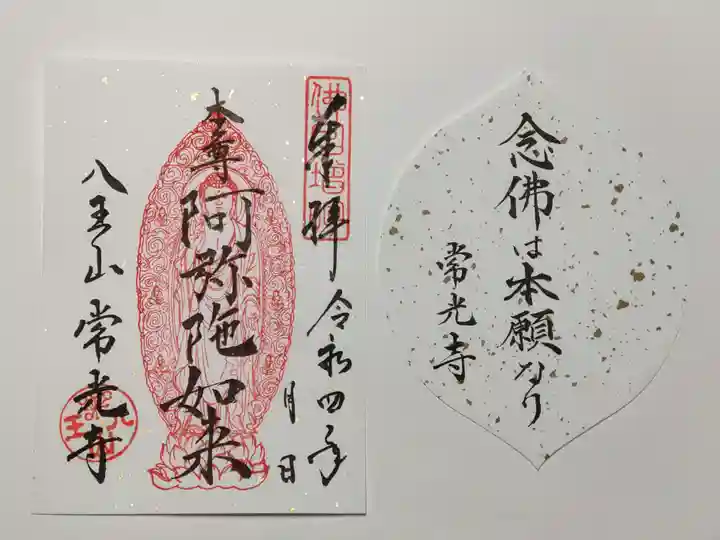 奉拝 令和四年
月 日
本尊 阿弥陀如来
八王山 常光寺
念佛は本願なり
常光寺